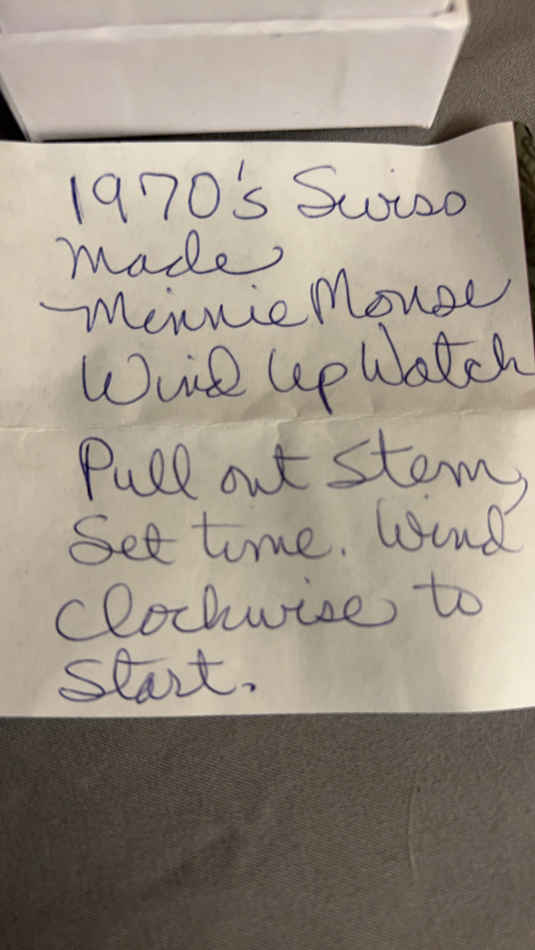 1970's Swiss
Made
Minnie Mouse
Wind Up Watch
Pull out Stem,
Set time. Wind
Clockwise to
Start.